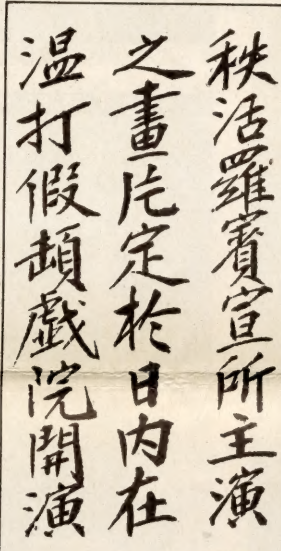 秩活羅賽宣所主演
之畫片定於日内在
温打假頭戲院開演